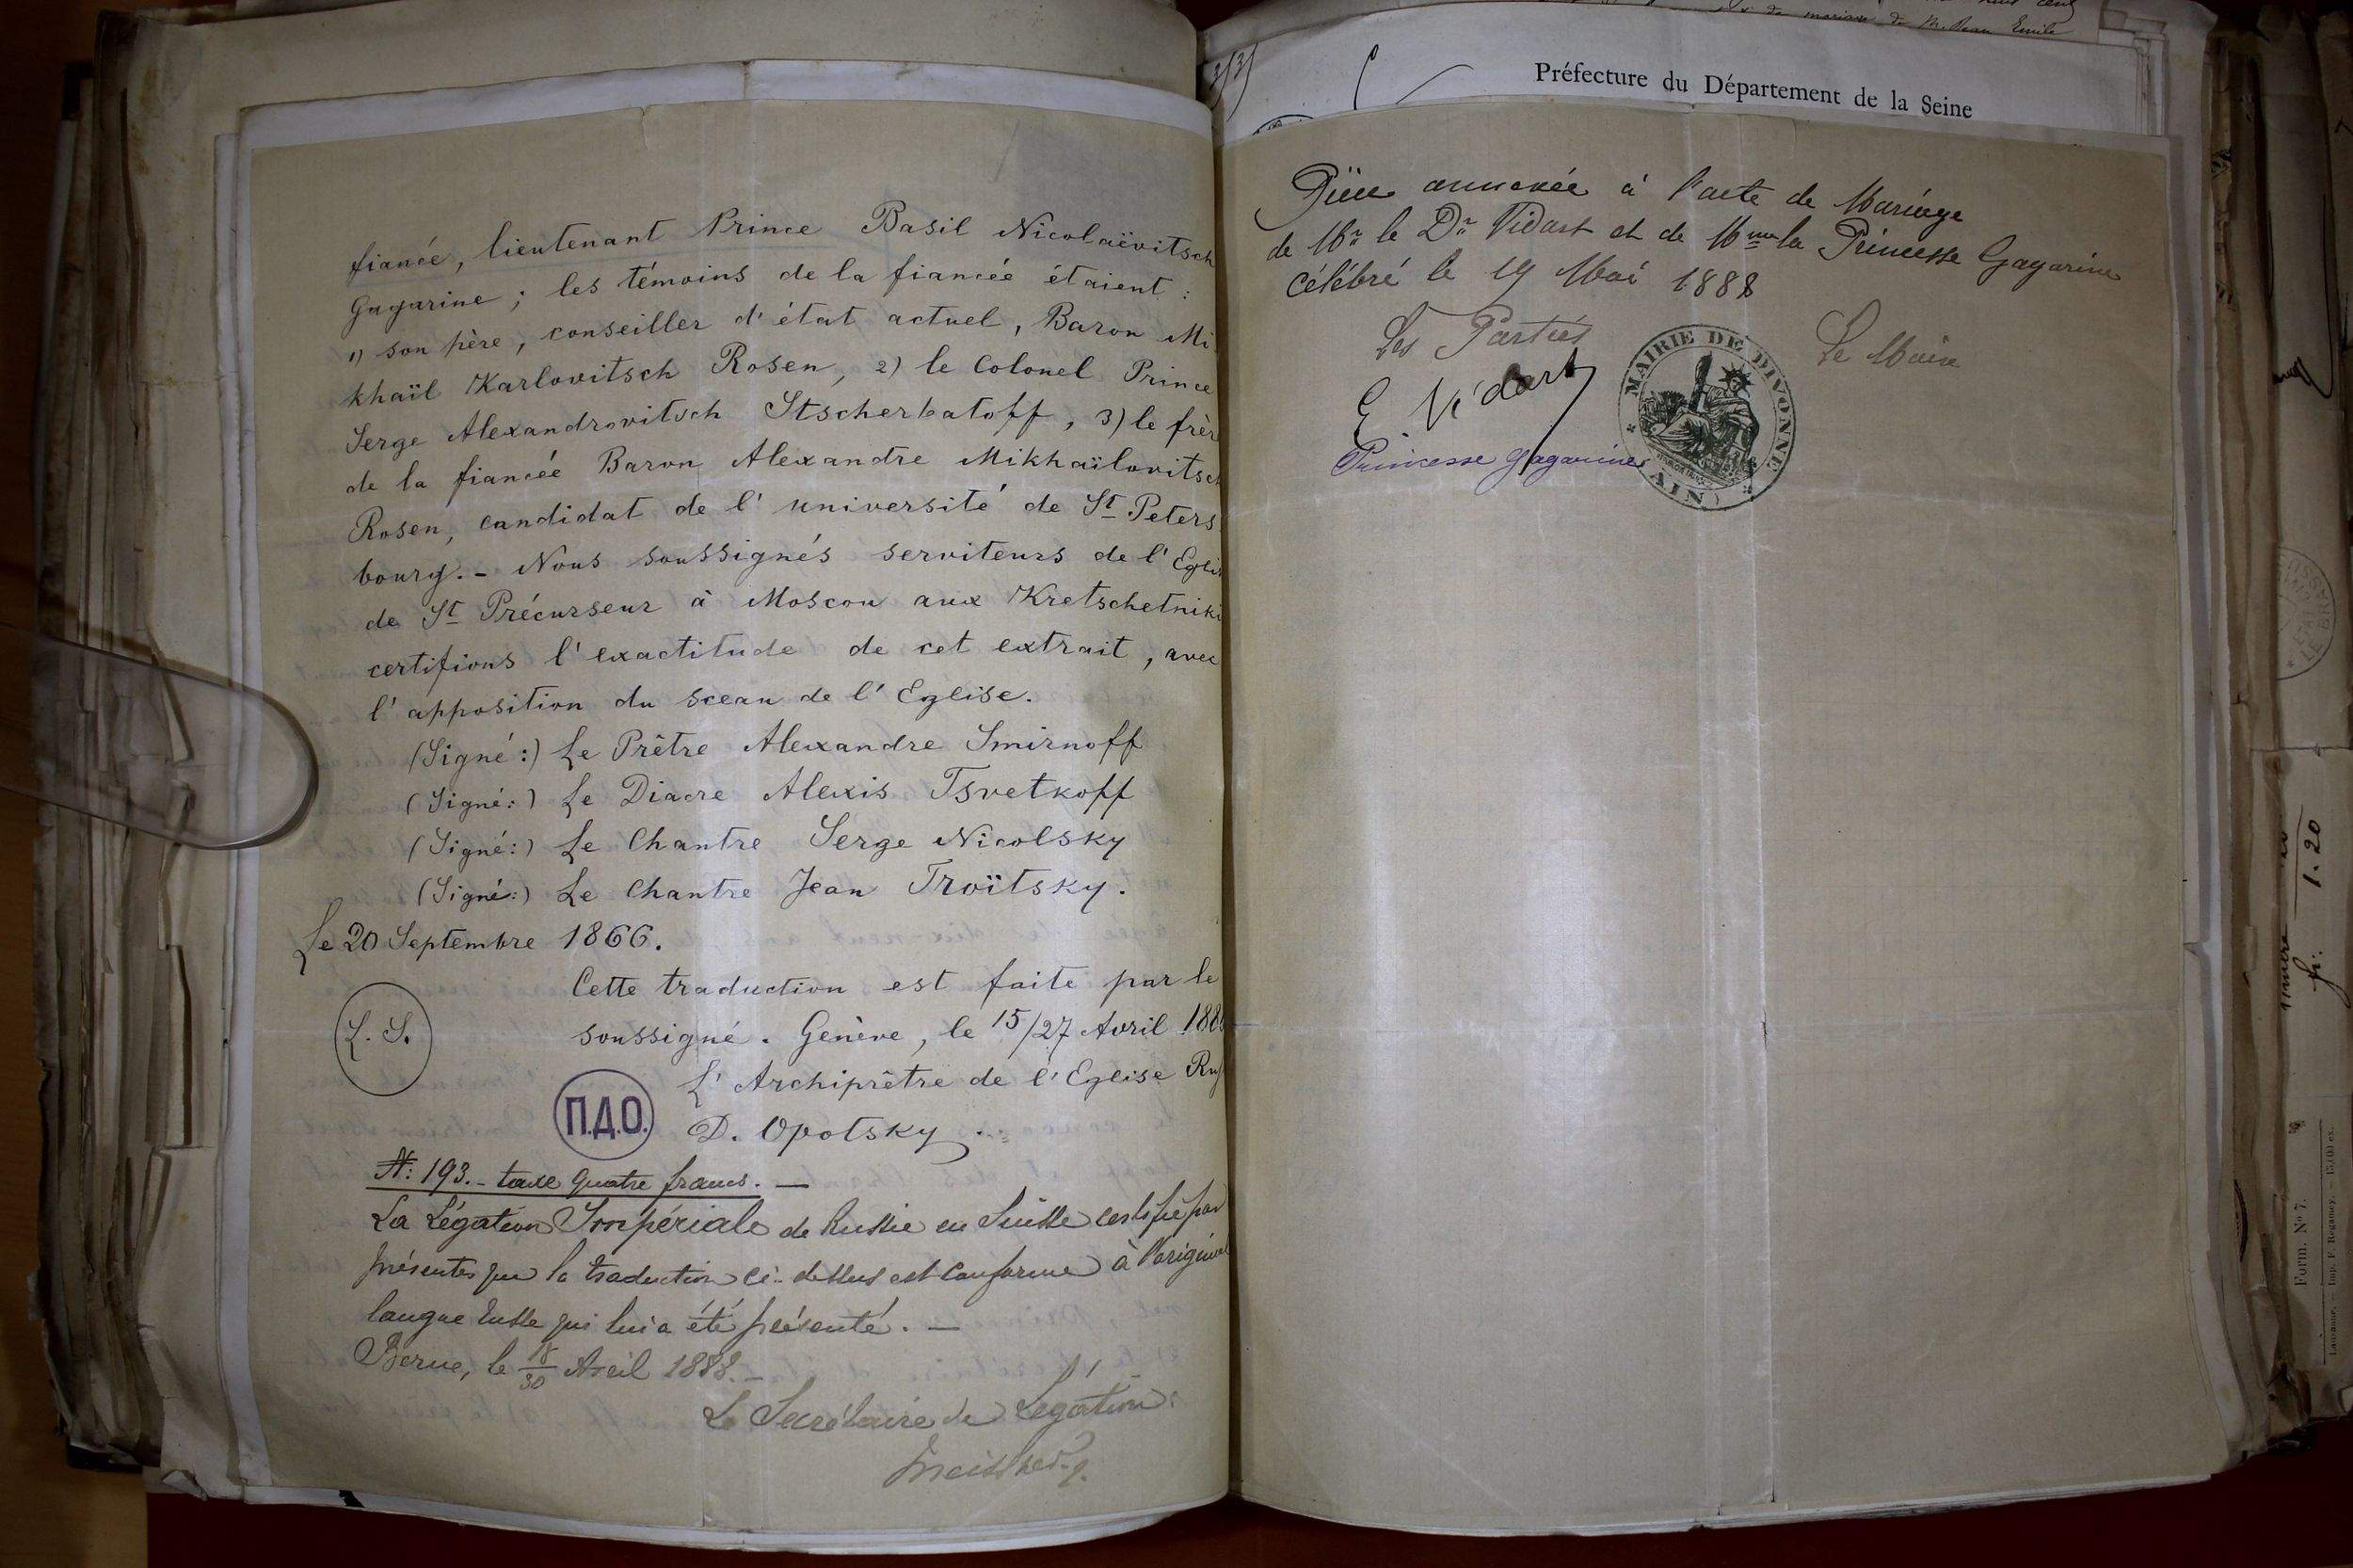 fiancé, lieutenant Prince Basil Nicolaëvitsch
Gagarine ; les témoins de la fiancée étaient :
1) son père, conseiller d'état actuel, Baron Mi
khaïl Karlovitsch Rosen, 2) le Colonel Prince
Serge Alexandrovitsch Stscherbatoff, 3) le frèr
de la fiancée Baron Alexandre Mikhaïlovitsch
Rosen, candidat de l'université de St. Peters
bourg. - Nous soussignés serviteurs de l'Eglis
de St. Précurseur à Moscou aux Kretschetniki
certifions l'exactitude de cet extrait, avec
l'apposition du sceau de l'Eglise.
(Signé:) Le Prêtre Alexandre Smirnoff
(Signé:) Le Diacre Alexis Tsvetkoff
(Signé:) Le Chantre Serge Nicolsky
(Signé:) Le Chantre Jean Troïtsky.
Le 20 Septembre 1866.
Cette traduction est faite par le
L. S.
soussigné. Genève, le 15/27 Avril 188
L'Archiprêtre de l'Eglise Rus
П.Д.О.
D. Opotsky
N: 193. - taxe quatre francs. -
La Légation Impériale de Russie en Suisse certifie par
présentes que la traduction ci-dessus est conforme à l'original
langue russe qui lui a été présenté. -
Berne, le 18/30 Avril 1888. -
Le Secrétaire de Légation:
Préfecture du Département de la Seine
Pièce annexée à l'acte de Mariage
de Mr. le Dr. Vidart et de Mme la Princesse Gagarine
Célébré le 19 Mai 1888
Les Parties
Le Maire
E Vidart
Princesse Gagarine
MAIRIE DE DIVONNE
(AIN)
de mariage de M. Jean Emile
fr. 1.20
Form. No 7.